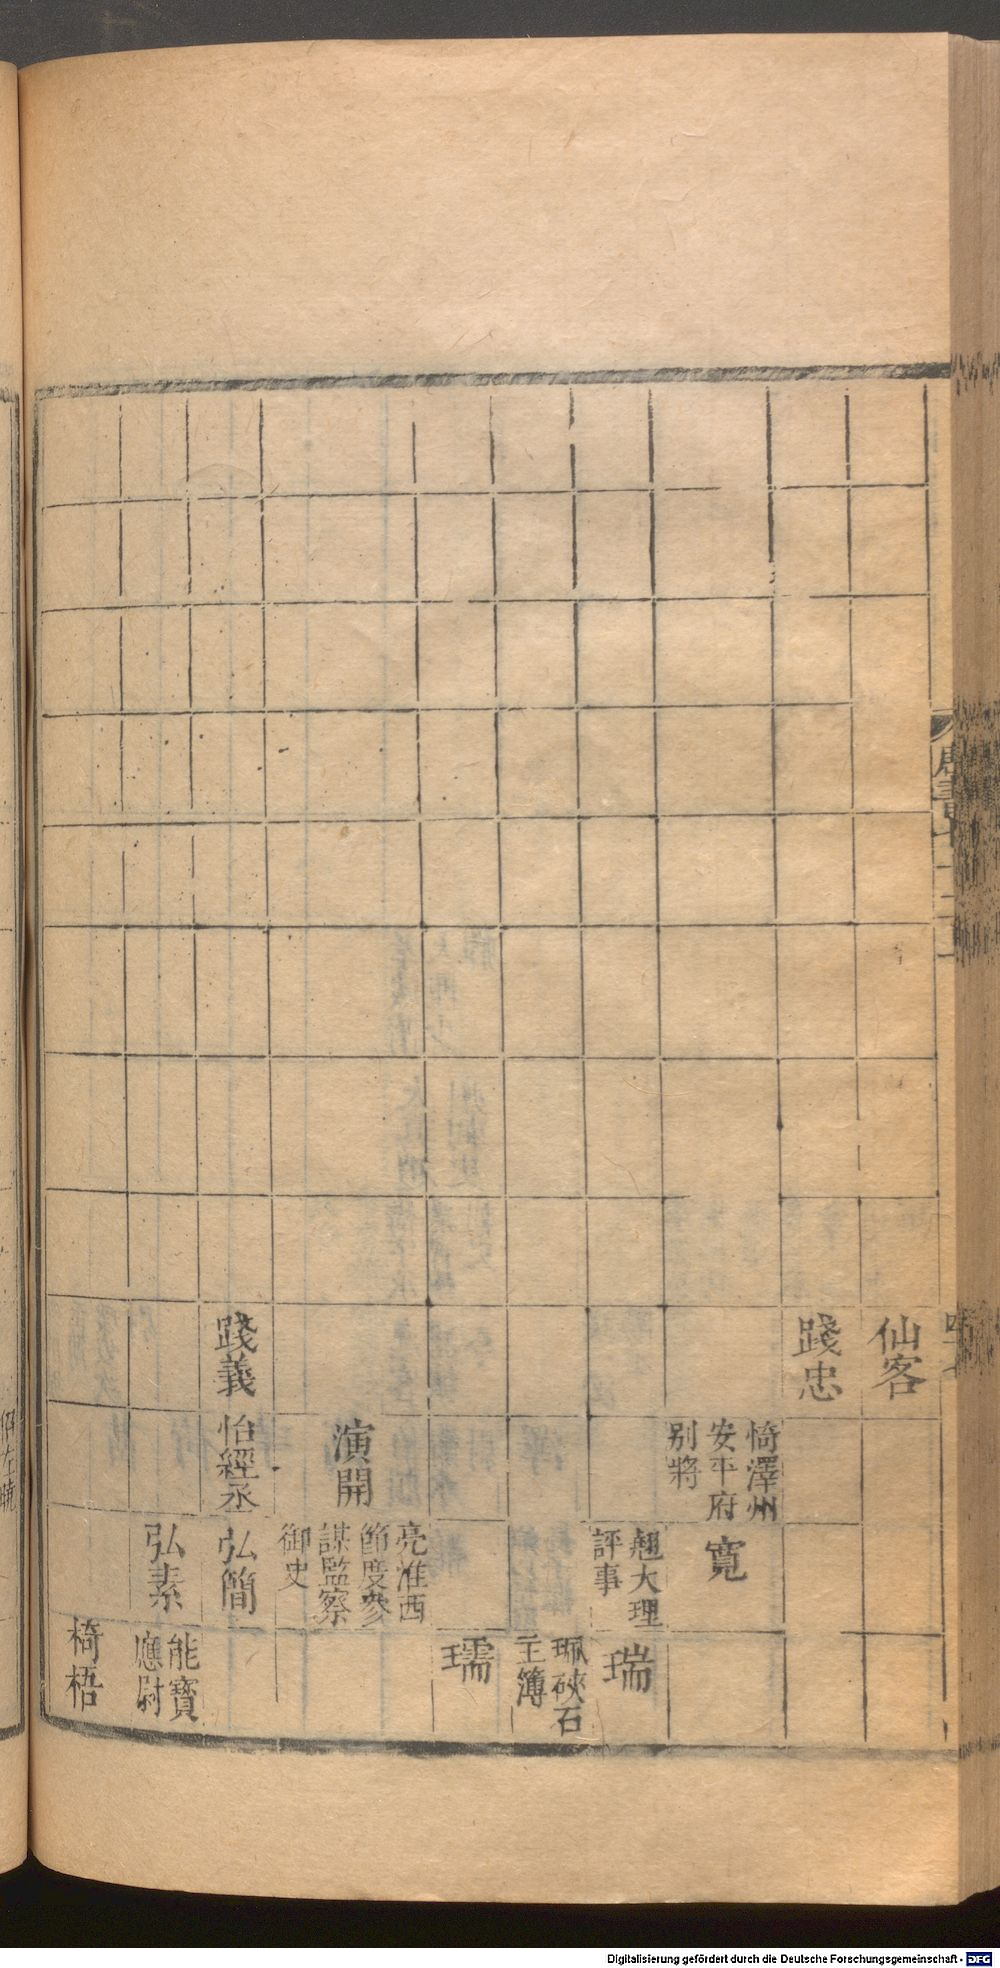 仙客
踐忠
惰澤州
安平府
别將
寬
翹大理
評事
瑞
珮硤石
主簿
瓀
演開
亮淮西
節度參
謀監察
御史
踐義
怡經丞
弘簡
弘素
能寶
應尉
椅梧
Digitalisierung gefördert durch die Deutsche Forschungsgemeinschaft - DFG